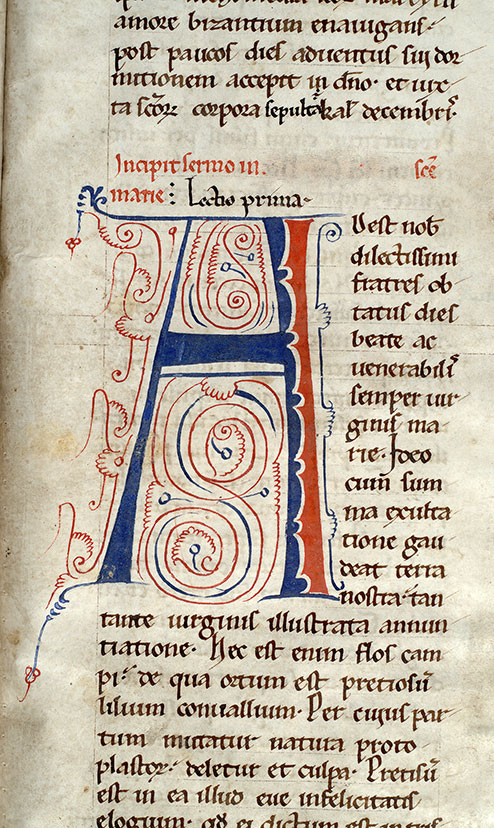 amore bizantium enauigans·
post paucos dies aduentus sui dor
mitionem accepit in dño· et iux
ta scōꝝ corpora sepulta kal decembris·
Incipit sermo in scē
marie: Lectio prima·
Ađest nob
dilectissimi
fratres ob
tatus dies
beate ac
uenerabilis
semper uir
ginis ma
rie· Ideo
cum sum
ma exulta
tione gau
deat terra
nostra· tan
tante uirginis illustrata annun
tiatione· Hec est enim flos cam
pi· de qua ortum est pretiosū
lilium conuallium· Per cuius par
tum mutatur natura proto
plastoꝝ· deletur et culpa· Precisū
est in ea illud eue infelicitatis
elogium· qđ ei dictum est